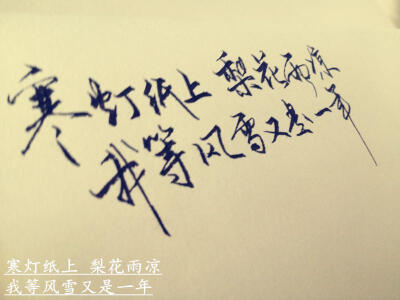 寒灯纸上 梨花雨凉
我等风雪又是一年
寒灯纸上 梨花雨凉
我等风雪又是一年